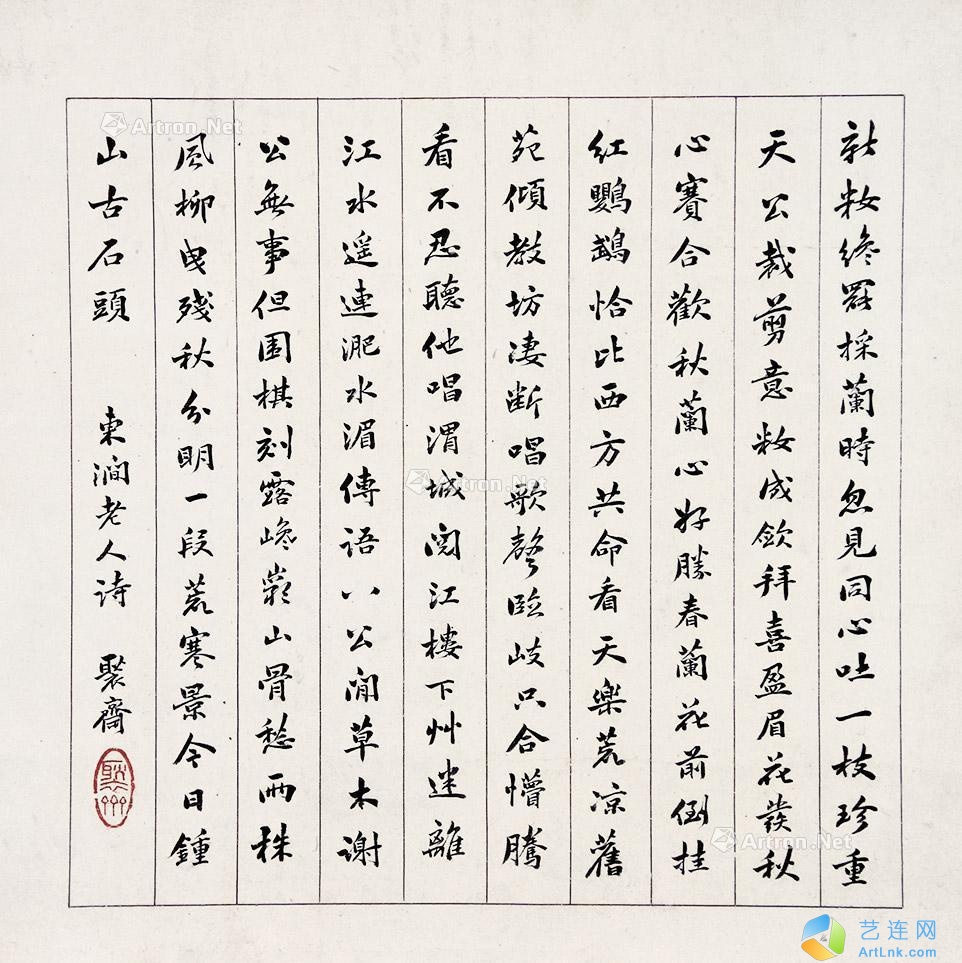 新妝終罷採蘭時忽見同心吐一枝珍重
天公裁剪意妝成斂拜喜盈眉花發秋
心賽合歡秋蘭心好勝春蘭花前倒挂
紅鸚鵡恰比西方共命看天樂荒凉舊
苑傾教坊凄斷唱歌聲臨岐只合懵騰
看不忍聽他唱渭城閱江樓下艸迷離
江水遥連淝水湄傳語八公閒草木謝
公無事但围棋刻露巉巖山骨愁兩株
風柳曳殘秋分明一段荒寒景今日鍾
山古石頭
東澗老人诗 褧齋
Artron.Net
Artron.Net
Artron.Net
艺连网
ArtLnk.com